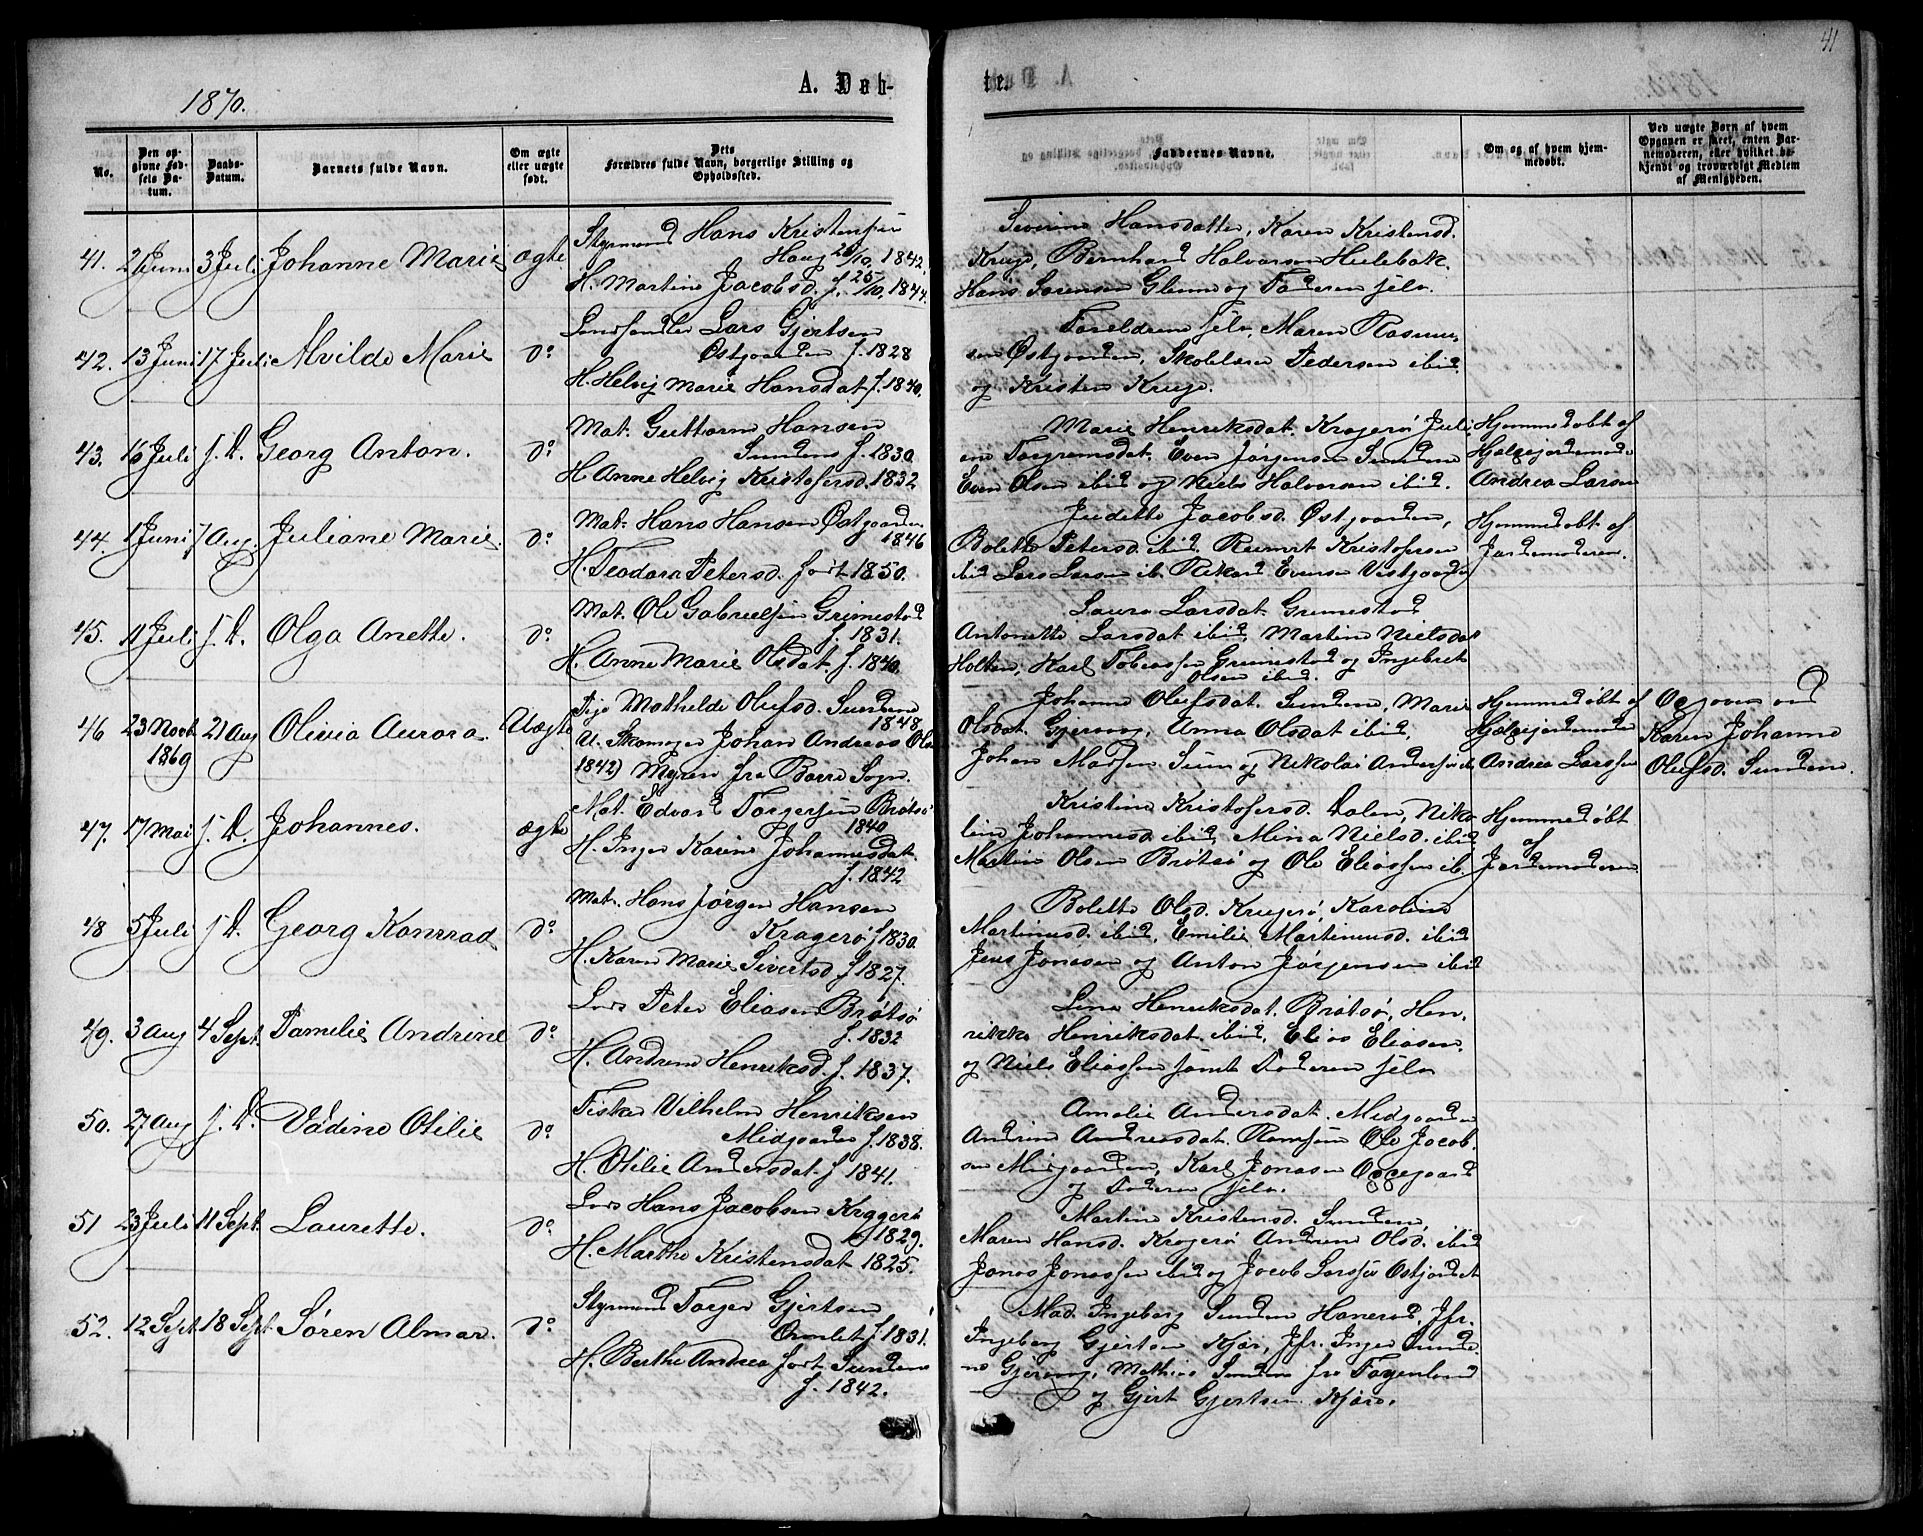 41
1870.
A. Døb-
te.
No.
Den op-
givne Fød-
sels Da-
tum.
Daabs-
Datum.
Barnets fulde Navn.
Om ægte
eller uægte
født.
Dets
Forældres fulde Navn, borgerlige Stilling og
Opholdssted.
Faddernes Navne.
Om og af hvem hjem-
medøbt.
Ved uægte Børn af hvem
Opgaven er skeet, enten Bar-
nemoderen, eller hvilket be-
kjendt og troværdigt Medlem
af Menigheden.
41. 21 Juni 3 Juli Johanne Marie ægte
Styrmand Hans Kristensen
Haug 1842.
H. Martine Jacobsd. f. 25/10 1844.
Severine Hansdatter, Karen Kristensd.
Bernhard Halvorsen Hulebak,
Hans Sørensen Glenne og Faderen selv.
42. 13 Juni 17 Juli Alvilde Marie Do
Landhandler Lars Gjertsen
Østgaarden f. 1828
H. Helvig Marie Hansdat f. 1840.
Forældrene selv, Maren Rasmus-
sen Østgaarden, Skolelærer Pedersen ibid.
og Kristen
43. 16 Juli s. D. Georg Anton. Do
Mat. Guttorm Hansen
Sundene f. 1830.
H. Anne Helvig Kristofersd. 1832
Marie Henriksdat. Kragerø Juli
ane Torgrimsdat. Even Jørgensen Sundene
Even Olsen ibid og Niels Halvorsen ibid.
Hjemmedøbt af
Hjælpejordemod.
Andrea Larsen
44. 1 Juni 7 Aug. Juliane Marie. Do
Mat. Hans Hansen Østgaarden
1846
H. Teodora Petersd. født 1850.
Judette Jacobsd. Østgaarden,
Bolette Petersd. ibid. Reinert Kristofersen
ibid Lars Larsen ib. Rikard Evensen Vestgaarden
Hjemmedøbt af
Jordemoderen.
45. 11 Juli s. D. Olga Anette. Do
Mat. Ole Gabrielsen Grimestad
f. 1831.
H. Anne Marie Olsdat. f. 1840.
Laura Larsdat. Grimestad
Antonette Larsdat ibid, Martine Nielsdat
Holten, Karl Tobiassen Grimestad og Ingebret
Olsen ibid.
46 23 Novb 21 Aug Olivia Aurora. Uægte
1869
Pige Mathilde Olufsd. Sundene
1848.
U. Skomager Johan Andreas Ols
1842) Myren fra Borre Sogn.
Johanne Olufsdat. Sundene, Marie
Olsdat. Gjersøe, Anna Olsdat ibid,
Johan Madsen Sunn og Nikolai Andersen
Hjemmedøbt af
Hjælpejordemoder
Andrea Larssen
Opgiven ved
Karen Johanne
Olufsd. Sundene.
47. 17 Mai s. D. Johannes. ægte
Mat. Edvard Torgersen Brøtsø
1840
H. Inger Karine Johannesdat.
f. 1842
Kristine Kristofersd. Dalen, Niko-
line Johannesd ibid, Mina Nielsd. ibid
Martin Olsen Brøtsø og Ole Eliassen ib.
Hjemmedøbt
af
Jordemoderen
48 5 Juli s. D. Georg Konrad Do
Mat. Hans Jørgen Hansen
Kragerø f. 1830.
H. Karen Marie Sivertsd f. 1827.
Bolette Olsd. Krugerø, Karoline
Martinusd. ibid, Emilie Martinusd. ibid
Jens Jonasen og Anton Jørgensen ibid
49. 3 Aug 4 Sept. Pamelie Andrine Do
Lods Peter Eliasen Brøtsø
f. 1832
H. Andrine Henriksd. f. 1837.
Lina Henriksdat. Brøtsø, Hen-
rikke Henriksdat. ibid, Elias Eliasen.
og Niels Eliassen samt Faderen selv
50. 27 Aug s. D. Valdine Otilie Do
Fisker Vilhelm Henriksen
Midgaarden f. 1838.
H. Otilie Andersdat. f 1841.
Amalie Andersdat. Midgaarden
Andrine Andreasdat. Ramsøn Ole Jacob-
sen Midgaarden, Karl Jonasen Oppegaard
og Faderen selv.
51 23 Juli 11 Sept. Laurette. Do
Lods Hans Jacobsen Kragerø
f 1829.
H. Marthe Kristensdat 1825.
Martine Kristensd. Sundene,
Maren Hansd. Kragerø Andrine Olsd. ibid
Jonas Jonassen ibid og Jacob Larssen Østgaardet
52. 12 Sept 18 Sept. Søren Almar. Do
Styrmand Torger Gjertsen
Ormlet f. 1831.
H. Berthe Andrea født Sundene
f. 1842.
Mad. Ingeborg Sundene Hanerød, Jfr.
Ingeborg Gjertsen Kjær, Jfr. Inger Sunde
ne Gjersøe, Mathias Sundene fra Føyenland
og Gjert Gjertsen Kjær.